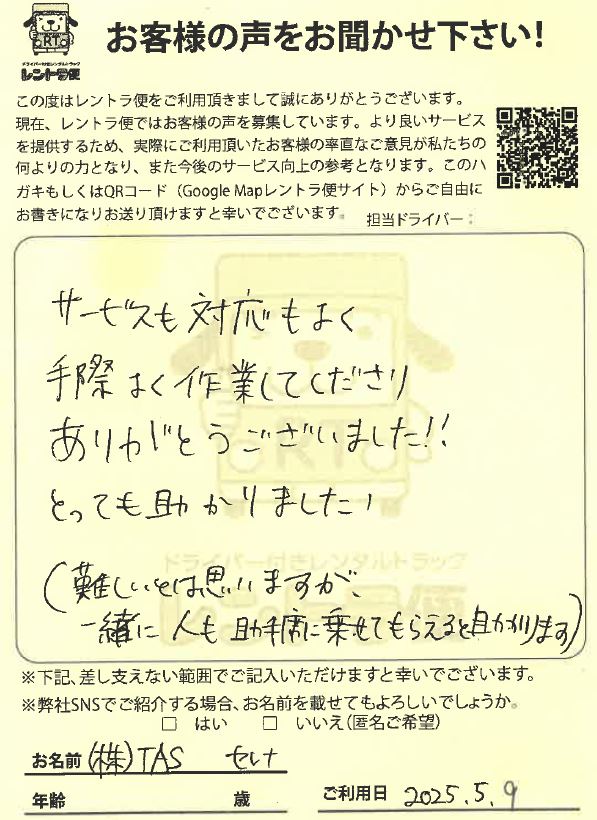 RT
ドライバー付きレンタルトラック
レントラ便
お客様の声をお聞かせ下さい!
この度はレントラ便をご利用頂きまして誠にありがとうございます。
現在、レントラ便ではお客様の声を募集しています。より良いサービス
を提供するため、実際にご利用頂いたお客様の率直なご意見が私たちの
何よりの力となり、また今後のサービス向上の参考となります。このハ
ガキもしくはQRコード（Google Mapレントラ便サイト）からご自由に
お書きになりお送り頂けますと幸いでございます。
担当ドライバー：
サービスも対応もよく
手際よく作業してくださり
ありがとうございました!!
とっても助かりました!
(難しいとは思いますが、
一緒に人も助手席に乗せてもらえると助かります)
RT
ドライバー付きレンタルトラック
レントラ便
※下記、差し支えない範囲でご記入いただけますと幸いでございます。
※弊社SNSでご紹介する場合、お名前を載せてもよろしいでしょうか。
□ はい □ いいえ(匿名ご希望)
お名前 (株)TAS セレナ
年齢 歳 ご利用日 2025.5.9